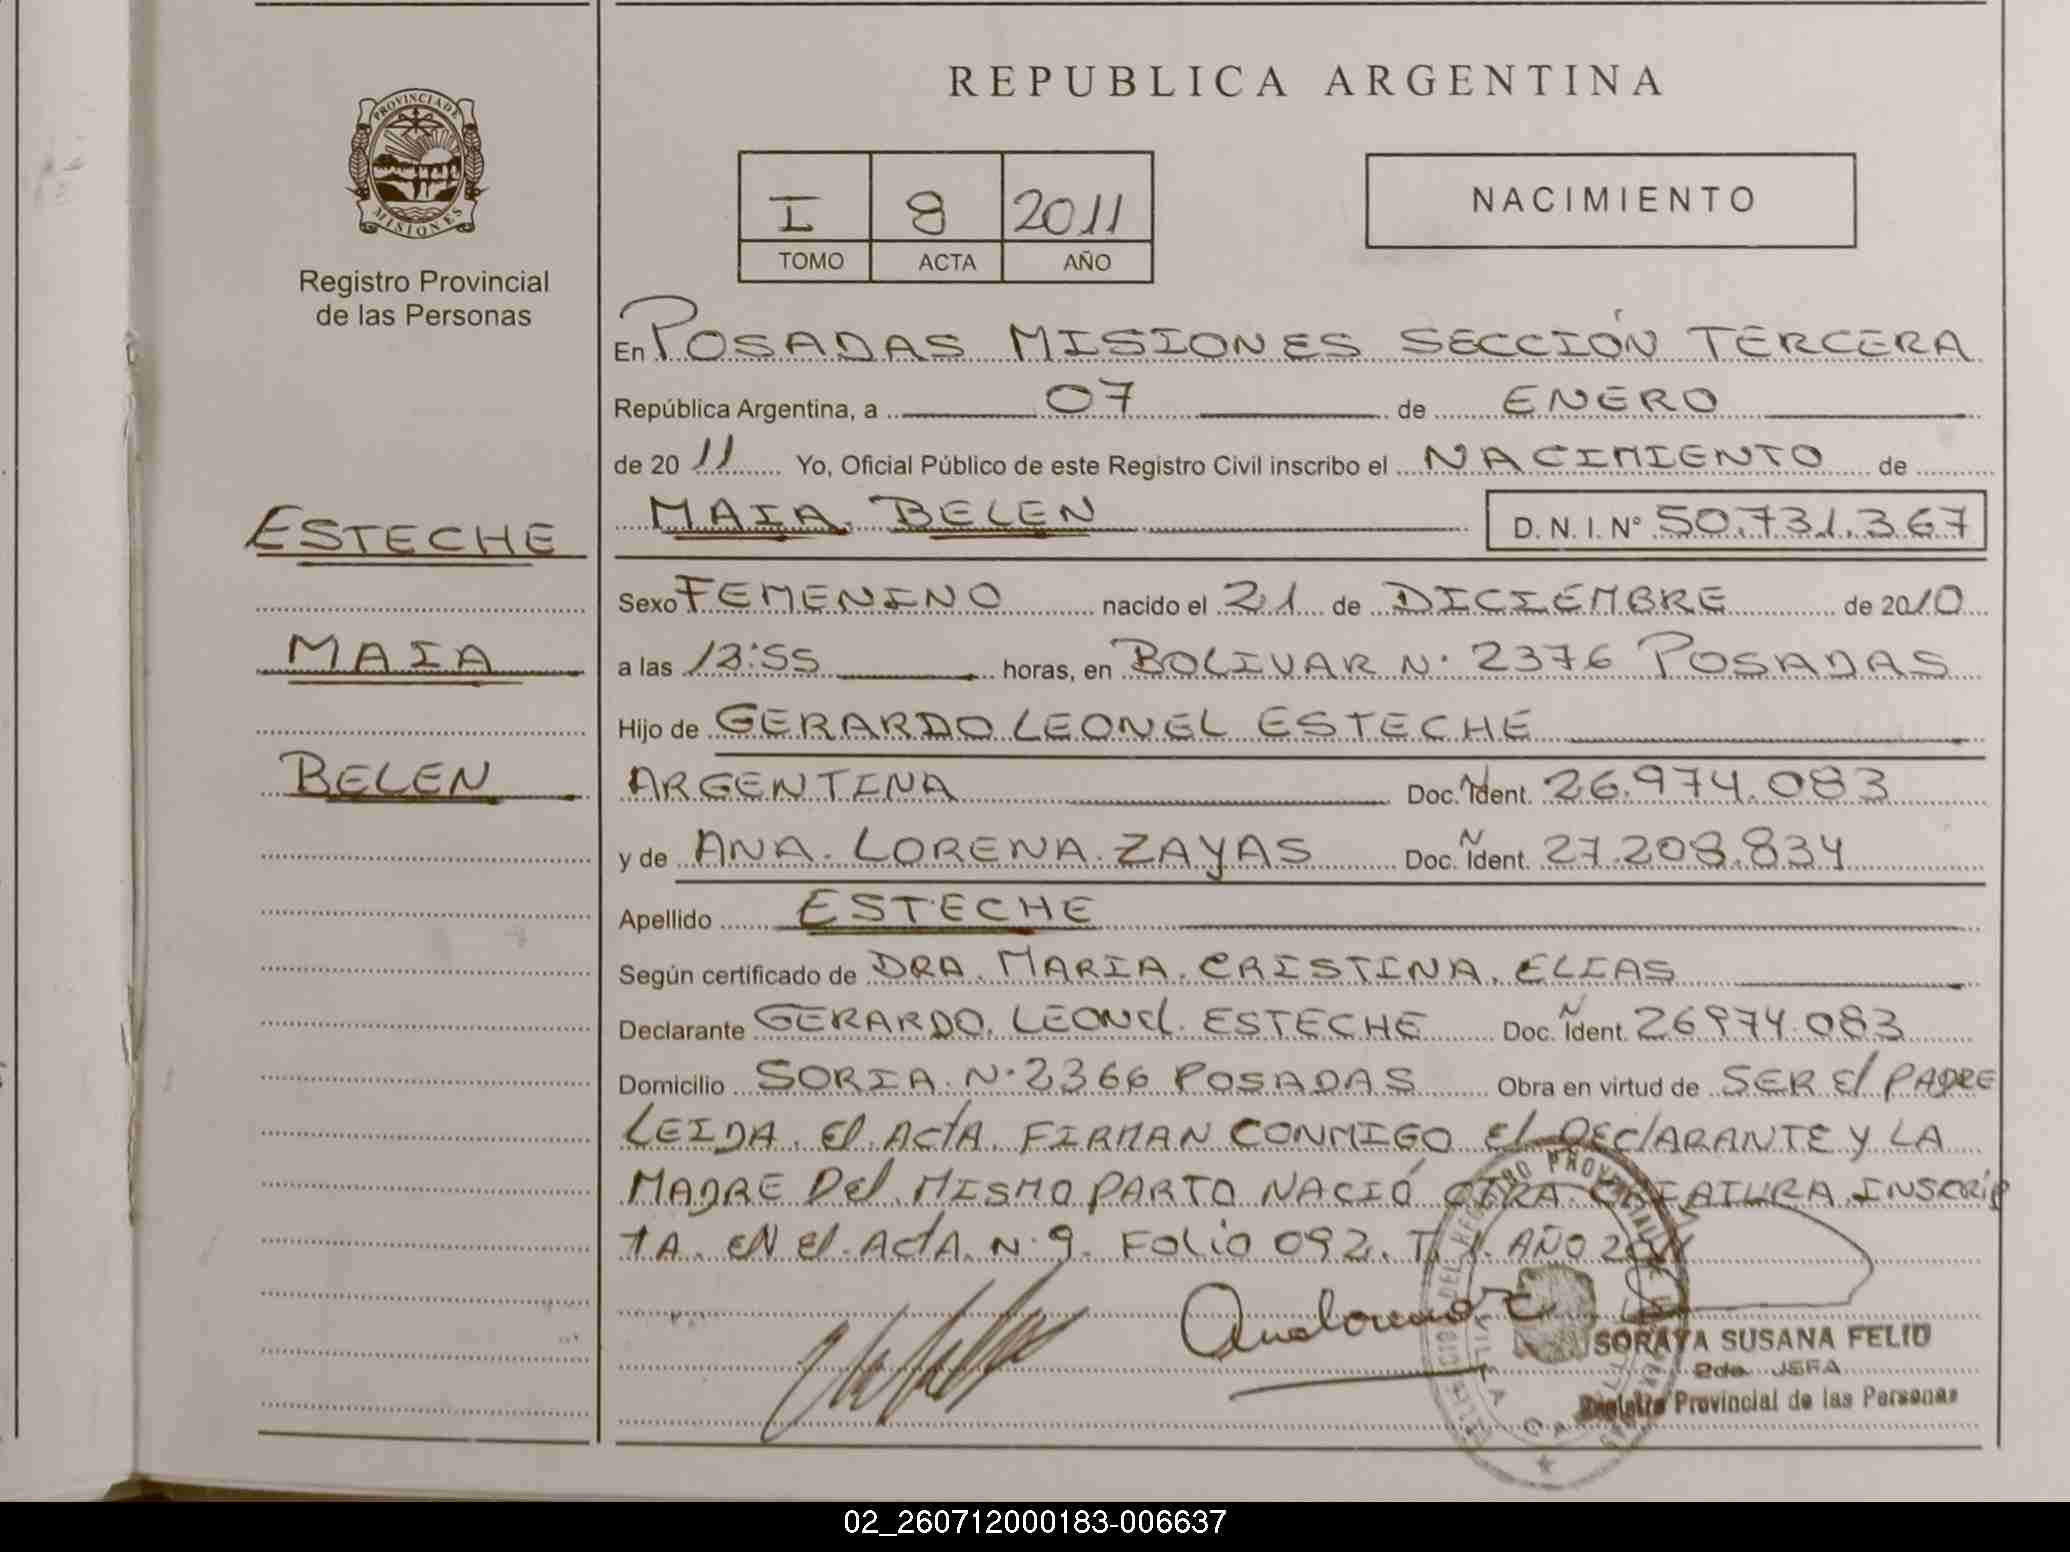 REPUBLICA ARGENTINA
PROVINCIA DE
MISIONES
Registro Provincial
de las Personas
I 8 2011
TOMO ACTA AÑO
NACIMIENTO
En POSADAS MISIONES SECCIÓN TERCERA
República Argentina, a 07 de ENERO
de 2011 Yo, Oficial Público de este Registro Civil inscribo el NACIMIENTO de
MAIA BELEN D. N. I. Nº 50.731.367
ESTECHE
Sexo FEMENINO nacido el 21 de DICIEMBRE de 2010
MAIA
a las 13:55 horas, en BOLIVAR N· 2376 POSADAS
Hijo de GERARDO LEONEL ESTECHE
BELEN
ARGENTINA Doc. N Ident. 26.974.083
y de ANA LORENA ZAYAS Doc. N Ident. 27.208.834
Apellido ESTECHE
Según certificado de DRA. MARIA CRISTINA ELIAS
Declarante GERARDO LEONEL ESTECHE Doc. N Ident. 26974.083
Domicilio SORIA N· 2366 POSADAS Obra en virtud de SER El PADRE
LEIDA El ActA FIRMAN CONMIGO El DEClARANTE y LA
MADRE DEl MISMO PARTO NACIÓ OTRA CRIATURA INSCRIP
TA EN El ActA N· 9 FOLIO 092 T. I. AÑO 2011
SORAYA SUSANA FELIU
2da. JEFA
Registro Provincial de las Personas
02_260712000183-006637